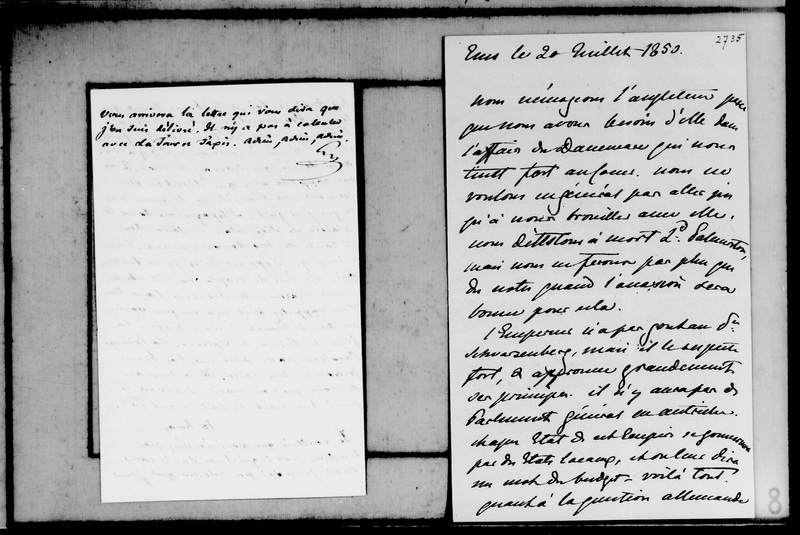 vous arrivera la lettre qui vous dira que
j'en suis délivré. Il n'y a pas à calculer
avec La Tour et Tapis. Adieu, Adieu, Adieu.
2735
Ems le 20 Juillet 1850.
nous ménageons l'angleterre parce
que nous avons besoin d'elle dans
l'affaire du Danemarc qui nous
tient fort au coeur. nous ne
voulons en général pas aller jus
qu'à nous brouiller avec elle.
nous détestons à mort Ld Palmerston,
mais nous ne ferons pas plus que
du notes quand l'occasion sera
bonne pour cela.
l'Empereur n'a pas goutau Pce
Schwarzenberg, mais il le respecte
fort, & approuve grandement
ses principes. il n'y aura pas de
Parlement général en autriche.
chaque Etat de cet Empire se gouvernera
par des Etats locaux, et on leur dira
un mot du budget - voilà tout.
quant à la question allemande
8